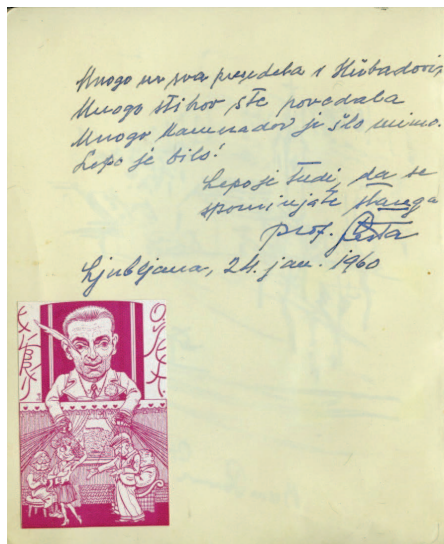 Mnogo ur sva presedela s Hubadovim
Mnogo štihov ste povedala
Mnogo Kamenadov je šlo mimo.
Lepo je bilo!
Lepo je tudi, da se
spominjate starega
prof. Šesta
Ljubljana, 24. jan. 1960
EX LIBRIS